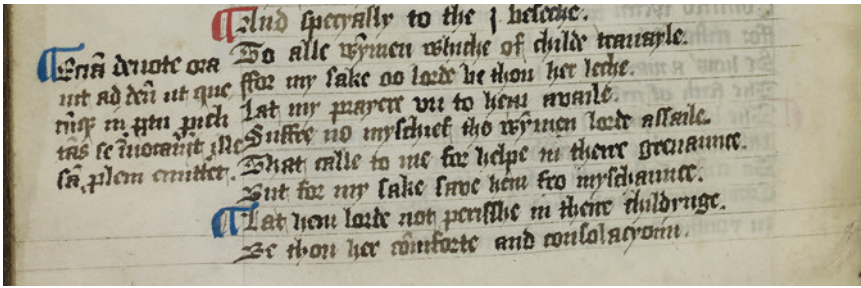 And specyally to the j beseche.
To alle wȳmen whiche of childe trauayle.
ffor my sake oo lorde be thou her leche.
Lat my prayere vn to hem availe.
Suffre no myschief tho wȳmen lorde assaile.
That calle to me for helpe in theire greuaunce.
But for my sake save hem fro myschaunce.
Lat hem lorde not perisshe in theire childynge.
Be thou her cōmforte and consolacyoun.
deuote ora
uit ad deū ut que
in ptu pich
tās se īuocauīt
sā plem emittet.